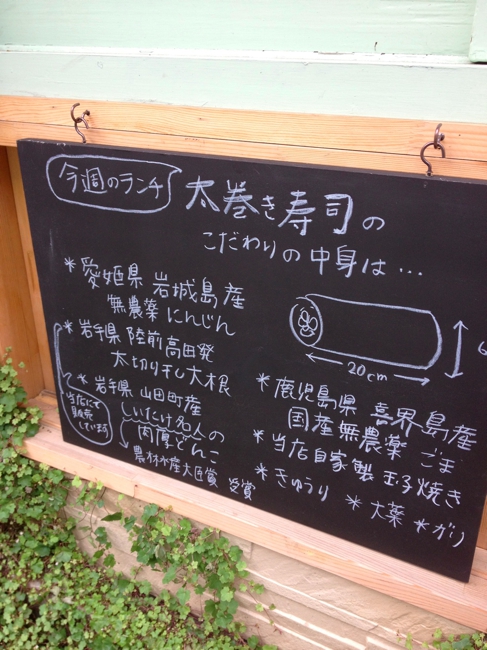 今週のランチ
太巻き寿司の
こだわりの中身は…
*愛媛県 岩城島産
無農薬にんじん
*岩手県 陸前高田発
太切り干し大根
*岩手県 山田町産
しいたけ名人の
肉厚どんこ
農林水産大臣賞 受賞
当店にて
販売
しています
20cm
6
*鹿児島県 喜界島産
国産無農薬 ごま
*当店自家製 玉子焼き
*きゅうり *大葉 *ガリ